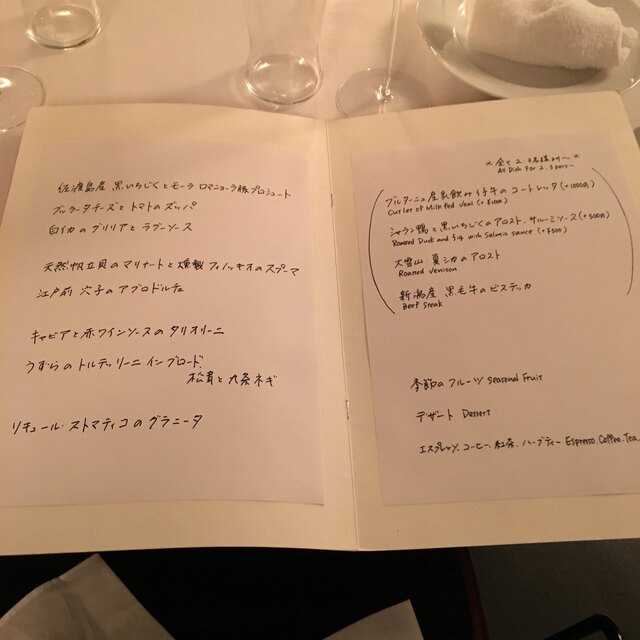 佐渡島産 黒いちじくとモーラ ロマニョーラ豚プロシュート
ブッラータチーズとトマトのズッパ
白イカのグリリアとラグーソース
天然帆立貝のマリナートと燻製フィノッキオのスプーマ
江戸前 穴子のアグロドルチェ
キャビアと赤ワインソースのタリオリーニ
うずらのトルテッリーニ インブロード
松茸と九条ネギ
リキュール・ストマティコのグラニータ
※ 全て 2, 3名様 ※
All Dish For 2, 3 pers~
ブルターニュ産乳飲み仔牛のコートレッタ (+1000円)
Cutlet of Milk Fed Veal (+¥1000)
シャラン鴨と黒いちじくのアロスト、サルミソース (+500円)
Roasted Duck and fig with Salmis sauce (+¥500)
大雪山・夏シカのアロスト
Roasted Venison
新潟産 黒毛牛のビステッカ
Beef Steak
季節のフルーツ Seasonal Fruit
デザート Dessert
エスプレッソ、コーヒー、紅茶、ハーブティー Espresso, Coffee, Tea,